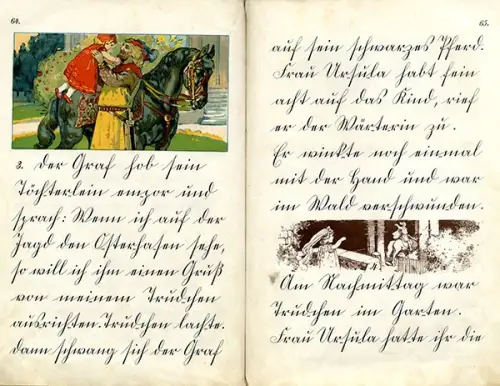 64.
3. Der Graf hob sein
Töchterlein empor und
sprach: Wenn ich auf der
Jagd den Osterhasen sehe,
so will ich ihm einen Gruß
von meinem Trudchen
ausrichten. Trudchen lachte.
Dann schwang sich der Graf
65.
auf sein schwarzes Pferd.
Frau Ursula habt fein
acht auf das Kind, rief
er der Wärterin zu.
Er winkte noch einmal
mit der Hand und war
im Wald verschwunden.
Am Nachmittag war
Trudchen im Garten.
Frau Ursula hatte ihr die